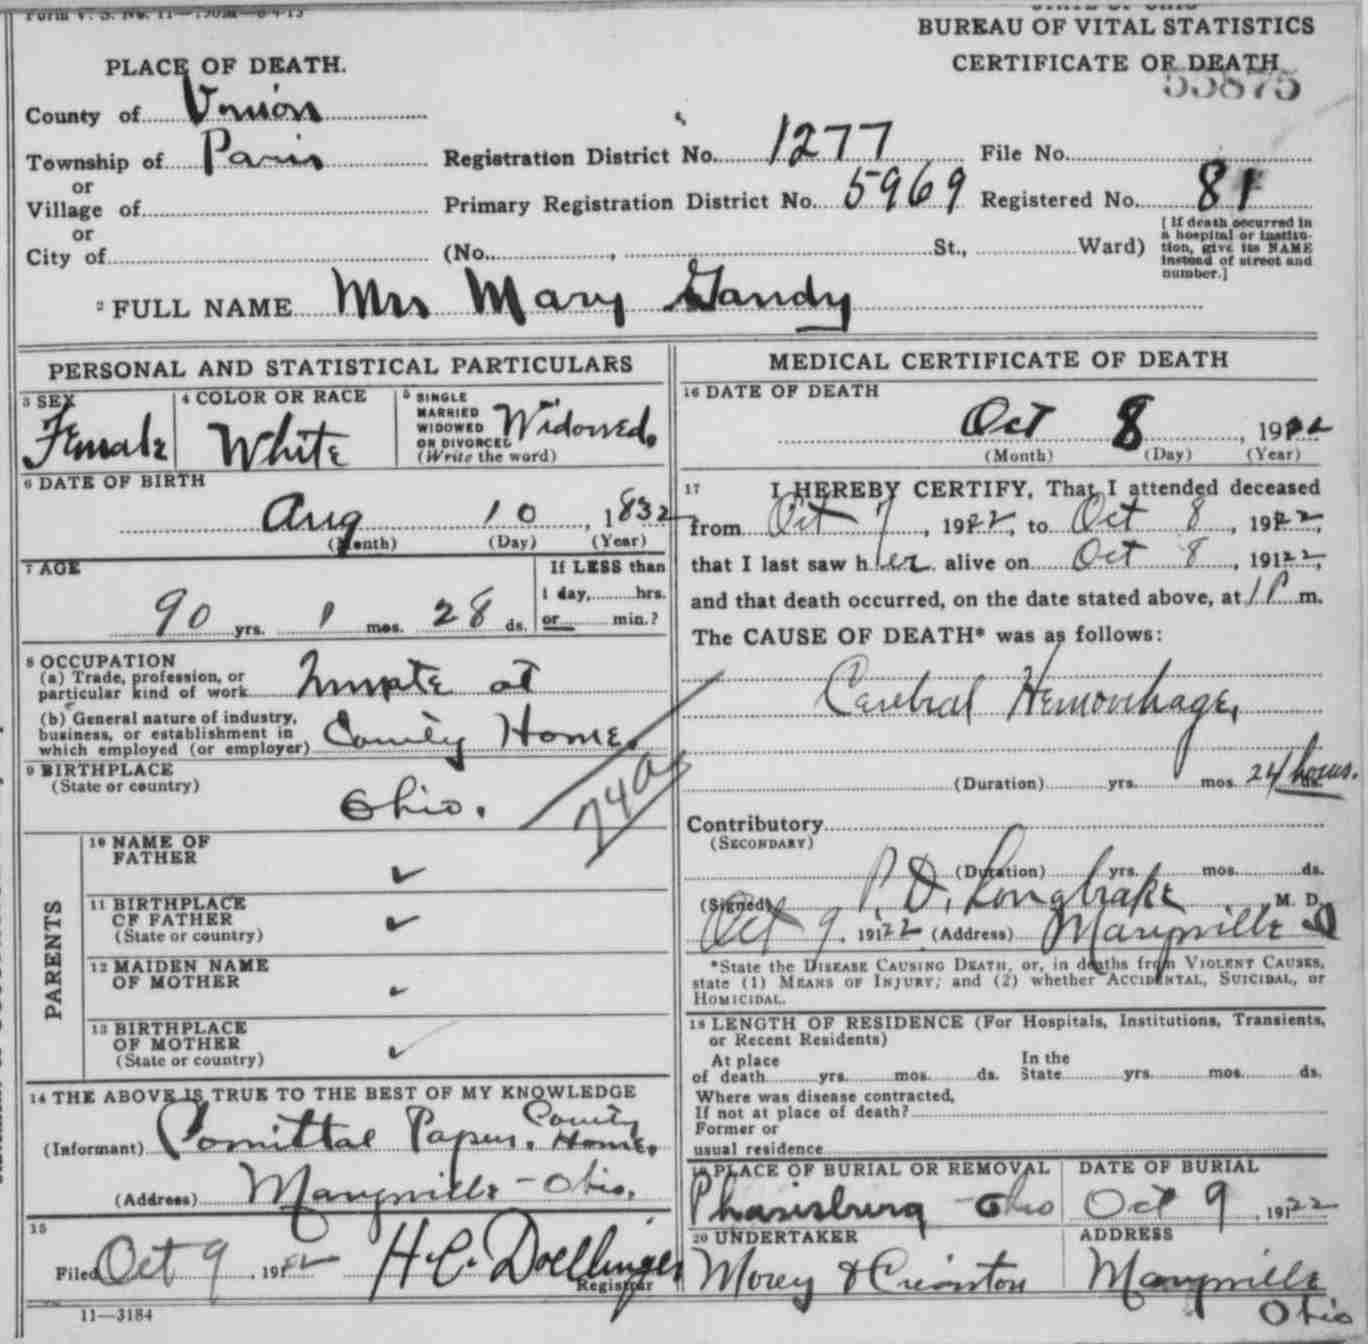 Form V. S. No. 11
STATE OF OHIO
BUREAU OF VITAL STATISTICS
CERTIFICATE OF DEATH
55875
PLACE OF DEATH.
County of Union
Township of Paris
or
Village of
or
City of
Registration District No. 1277 File No.
Primary Registration District No. 5969 Registered No. 81
(No. , St., Ward)
[If death occurred in
a hospital or institu-
tion, give its NAME
instead of street and
number.]
2 FULL NAME Mrs Mary Gandy
PERSONAL AND STATISTICAL PARTICULARS
3 SEX
Female
4 COLOR OR RACE
White
5 SINGLE
MARRIED
WIDOWED
OR DIVORCED
(Write the word)
Widowed.
6 DATE OF BIRTH
Aug 10, 1832
(Month) (Day) (Year)
7 AGE
90 yrs. 1 mos. 28 ds.
If LESS than
1 day, hrs.
or min.?
8 OCCUPATION
(a) Trade, profession, or
particular kind of work Inmate at
(b) General nature of industry,
business, or establishment in
which employed (or employer) County Home.
9 BIRTHPLACE
(State or country)
Ohio.
74a
PARENTS
10 NAME OF
FATHER ✓
11 BIRTHPLACE
OF FATHER
(State or country) ✓
12 MAIDEN NAME
OF MOTHER ✓
13 BIRTHPLACE
OF MOTHER
(State or country) ✓
14 THE ABOVE IS TRUE TO THE BEST OF MY KNOWLEDGE
(Informant) Comittal Papers. County Home.
(Address) Marysville - Ohio.
15
Filed Oct 9, 1922 H. C. Doellinger
Registrar
11—3184
MEDICAL CERTIFICATE OF DEATH
16 DATE OF DEATH
Oct 8, 1922
(Month) (Day) (Year)
17 I HEREBY CERTIFY, That I attended deceased
from Oct 7, 1922, to Oct 8, 1922,
that I last saw her alive on Oct 8, 1922,
and that death occurred, on the date stated above, at 1 P m.
The CAUSE OF DEATH* was as follows:
Cerebral Hemorrhage,
(Duration) yrs. mos. 24 hours.
Contributory
(SECONDARY)
(Duration) yrs. mos. ds.
(Signed) P. D. Longbrake M. D.
Oct 9, 1922 (Address) Marysville O
*State the DISEASE CAUSING DEATH, or, in deaths from VIOLENT CAUSES,
state (1) MEANS OF INJURY; and (2) whether ACCIDENTAL, SUICIDAL, or
HOMICIDAL.
18 LENGTH OF RESIDENCE (For Hospitals, Institutions, Transients,
or Recent Residents)
At place
of death yrs. mos. ds.
In the
State yrs. mos. ds.
Where was disease contracted,
If not at place of death?
Former or
usual residence
19 PLACE OF BURIAL OR REMOVAL
Pharisburg Ohio
DATE OF BURIAL
Oct 9, 1922
20 UNDERTAKER
Morey &
ADDRESS
Marysville
Ohio